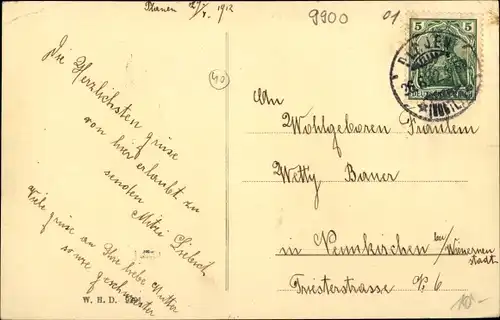 Plauen 27/7. 1912
9900
01
5
40
Die Herzlichsten Grüsse
von hier erlaubt zu
senden Mitzi Liebisch
Viele grüse an Ihre liebe Mutter
sowie geschwister
W. H. D.
An
Wohlgeboren Fräulein
Wetty Bauer
in Neunkirchen bei Wienern
stadt
Triesterstrasse No 6
10.-